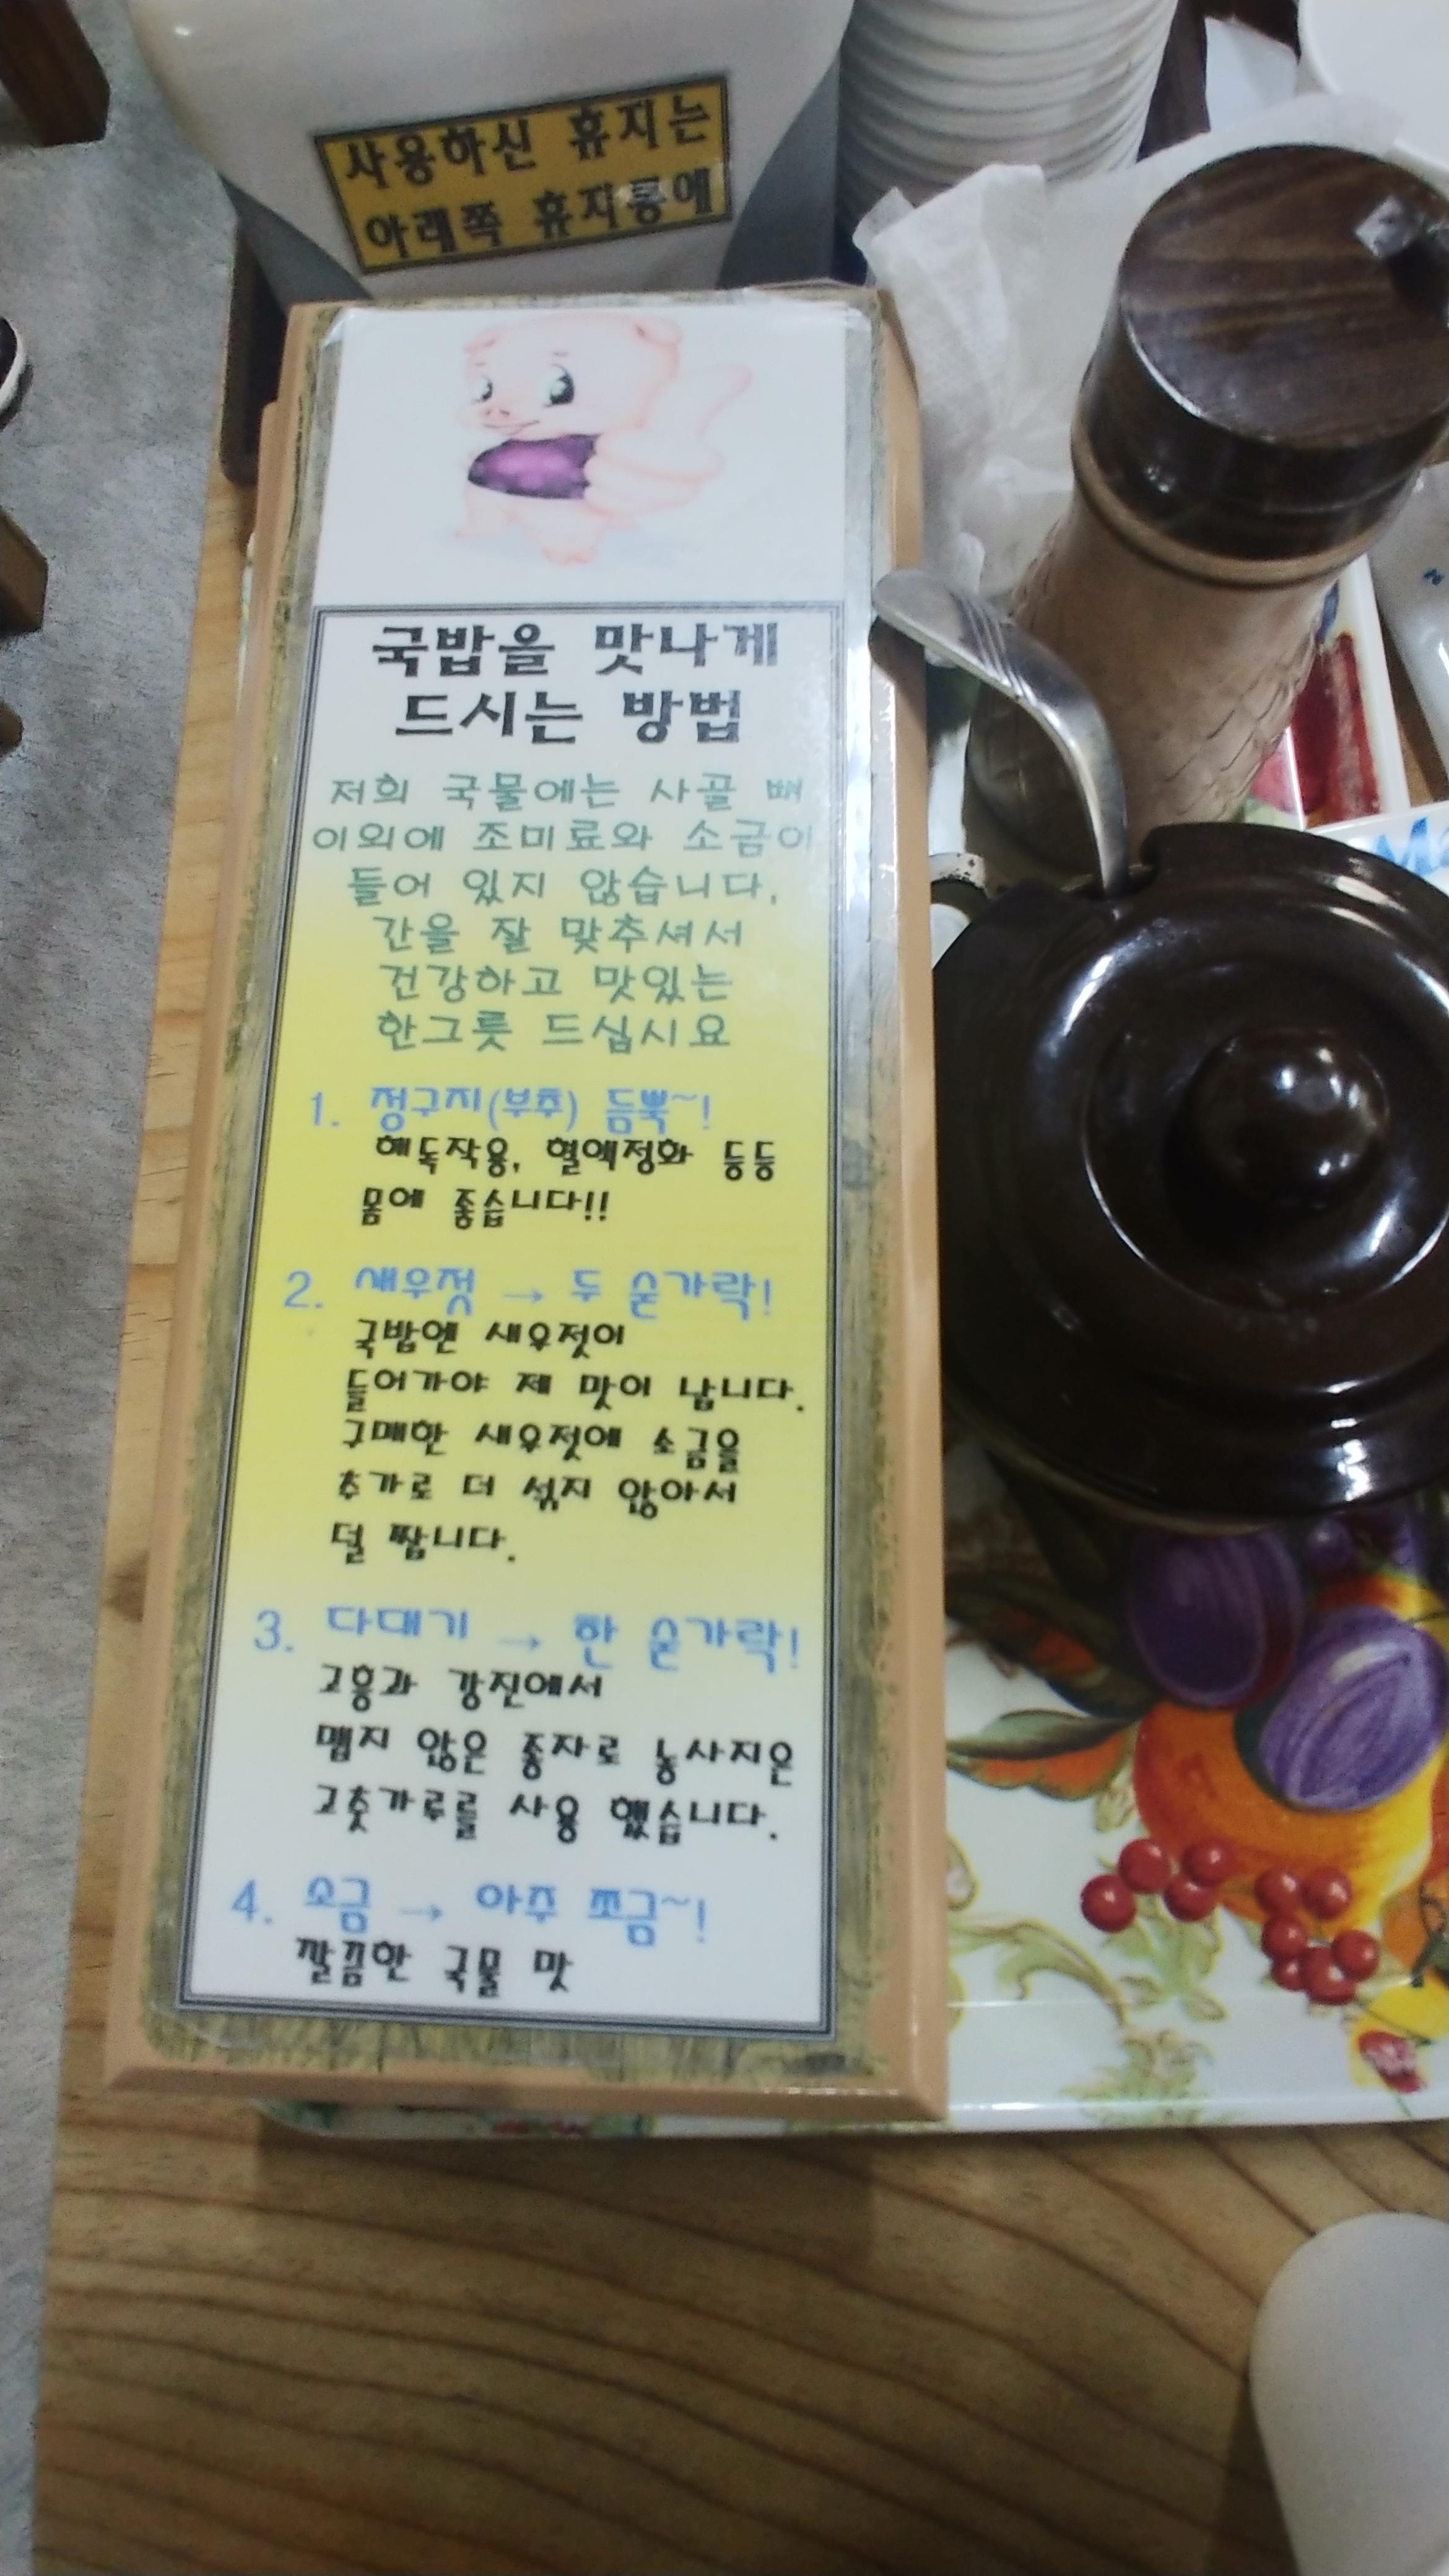 사용하신 휴지는
아래쪽 휴지통에
국밥을 맛나게
드시는 방법
저희 국물에는 사골 뼈
이외에 조미료와 소금이
들어 있지 않습니다.
간을 잘 맞추셔서
건강하고 맛있는
한그릇 드십시요
1. 정구지(부추) 듬뿍~!
해독작용, 혈액정화 등등
몸에 좋습니다!!
2. 새우젓 → 두 숟가락!
국밥엔 새우젓이
들어가야 제 맛이 납니다.
구매한 새우젓에 소금을
추가로 더 섞지 않아서
덜 짭니다.
3. 다대기 → 한 숟가락!
고흥과 강진에서
맵지 않은 종자로 농사지은
고춧가루를 사용 했습니다.
4. 소금 → 아주 쪼금~!
깔끔한 국물 맛